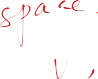 space.
v,